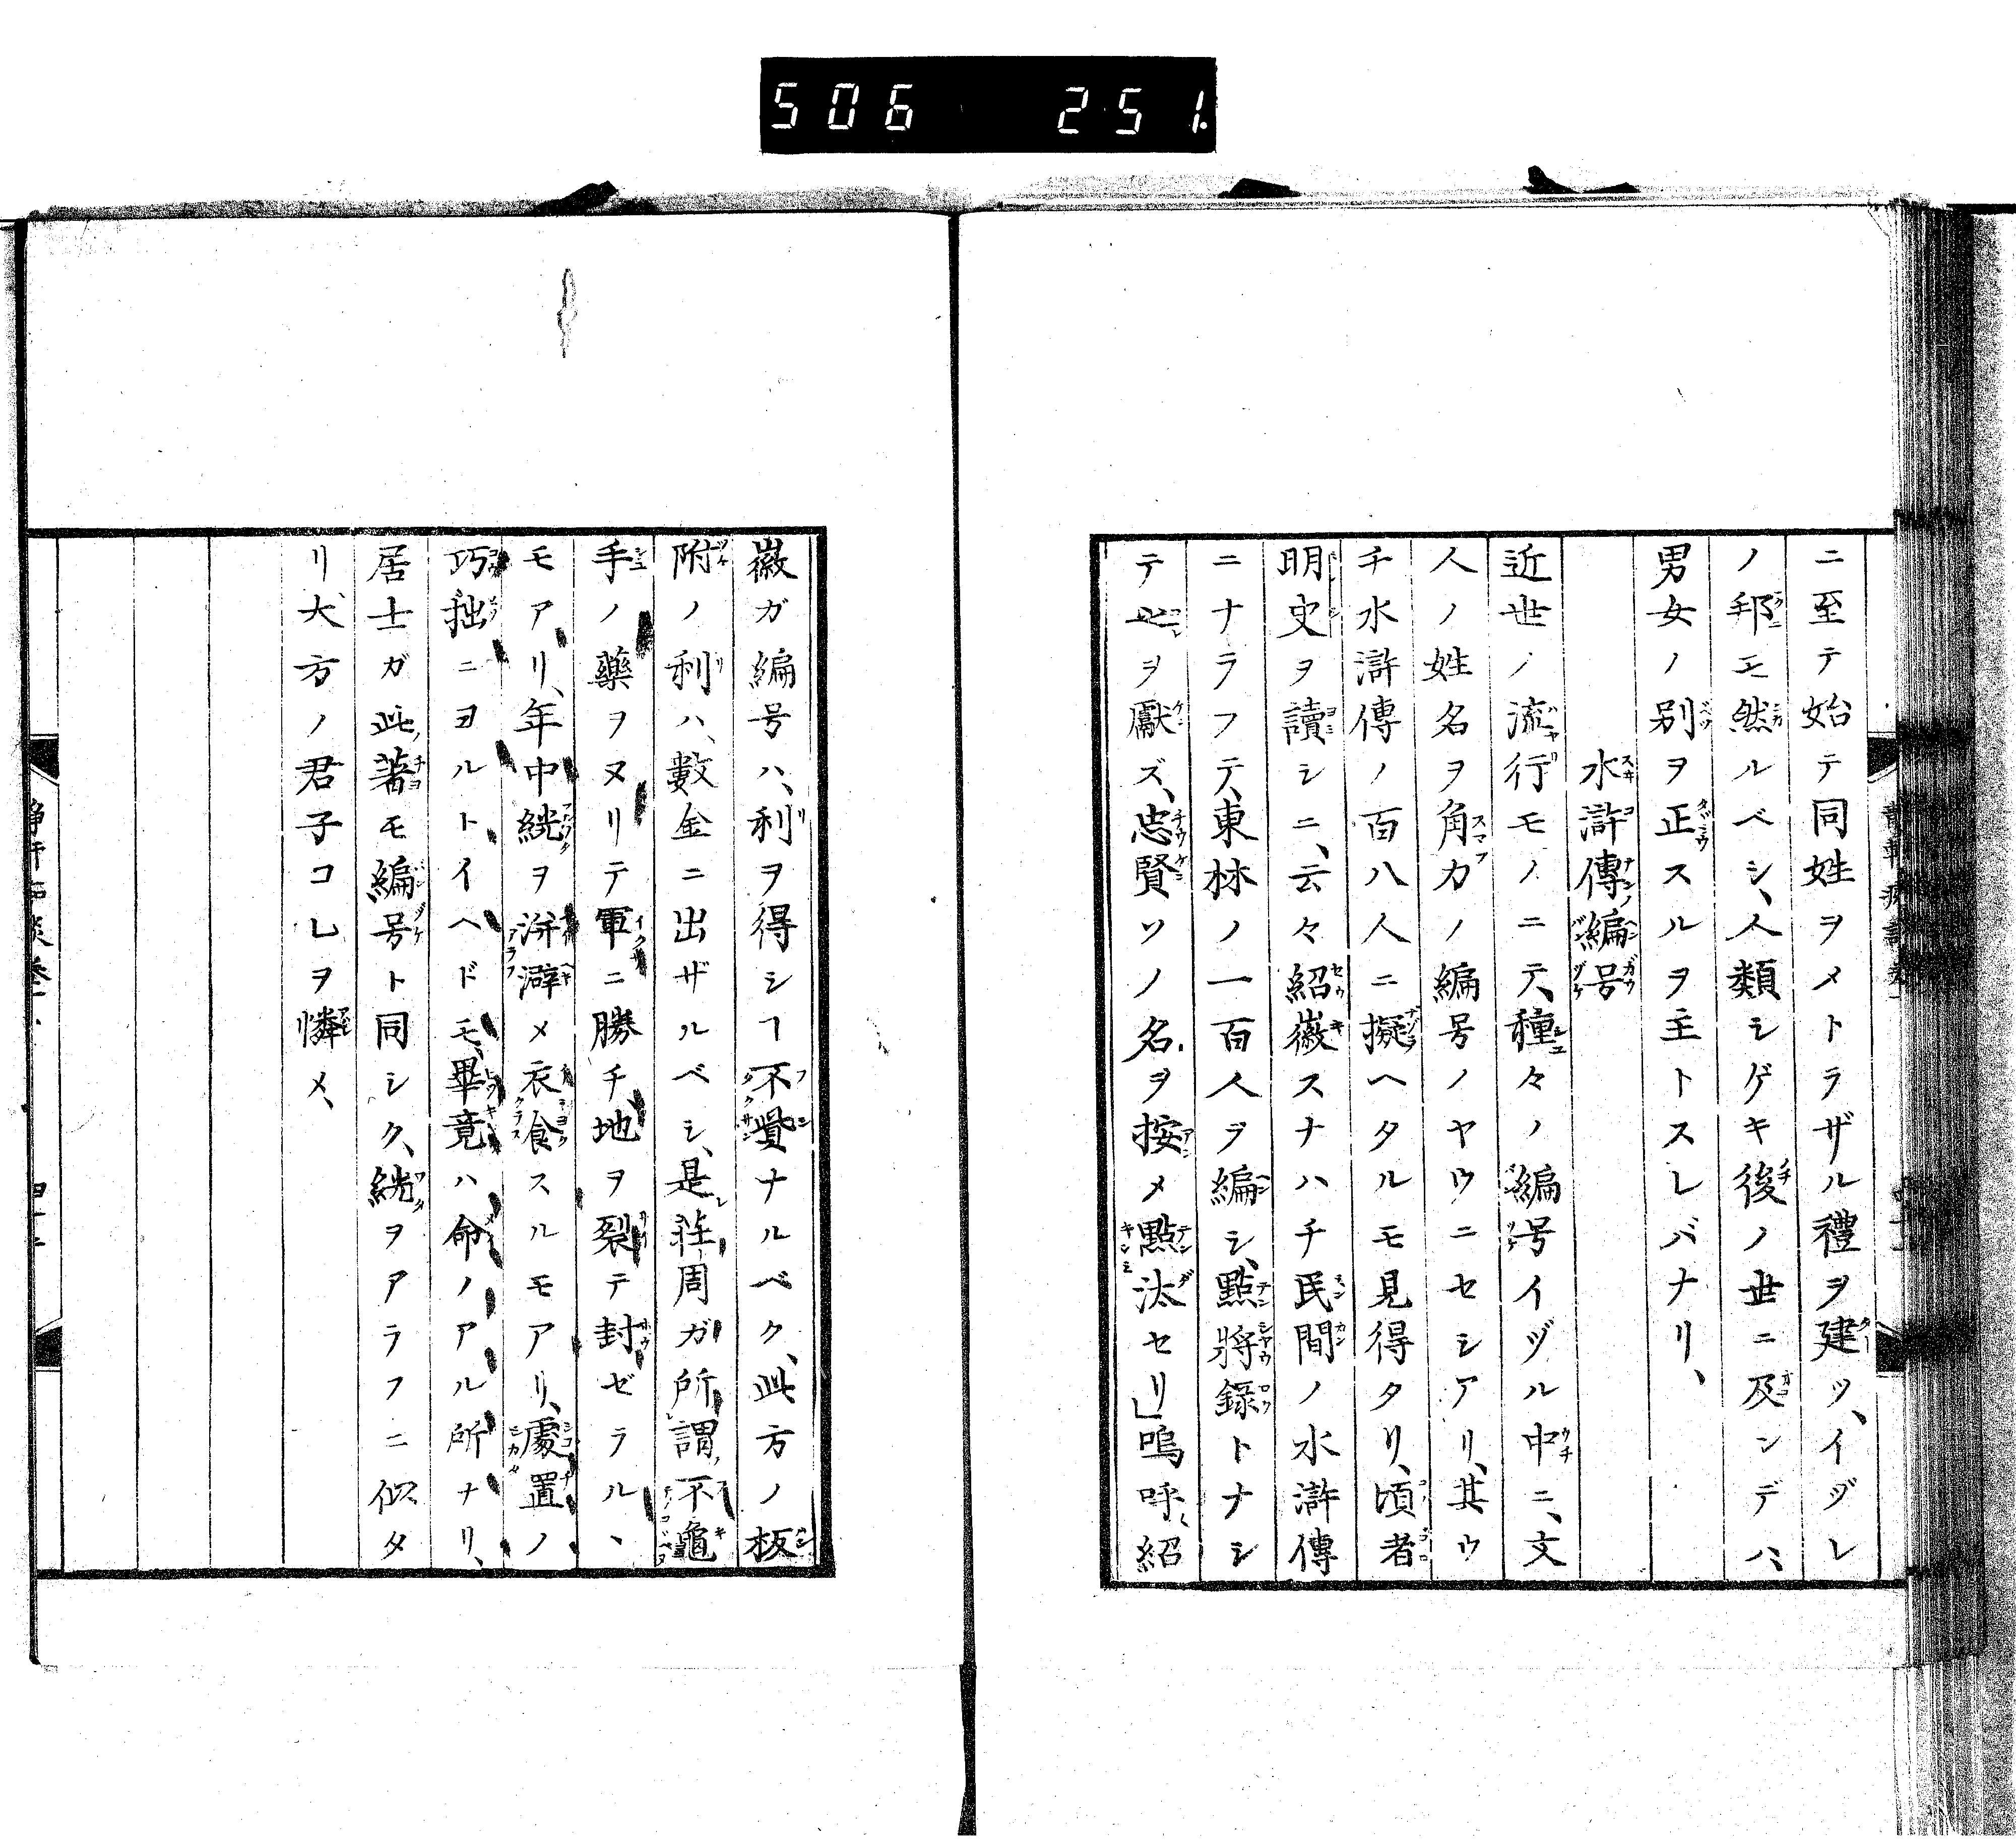 506 251
ニ至テ始テ同姓ヲメトラザル禮ヲ建ツ、イヅレ
ノ邦モ然ルベシ、人類シゲキ後ノ世ニ及ンデハ、
男女ノ別ヲ正スルヲ主トスレバナリ、
水滸傳編号
近世ノ流行モノニテ、種々ノ編号イヅル中ニ、文
人ノ姓名ヲ角力ノ編号ノヤウニセシアリ、其ウ
チ水滸傳ノ百八人ニ擬ヘタルモ見得タリ、頃者
明史ヲ讀シニ、云々紹徽スナハチ民間ノ水滸傳
ニナラフテ、東林ノ一百人ヲ編シ、點將録トナシ
テ此ヲ獻ズ、忠賢ソノ名ヲ按メ點汰セリ」嗚呼紹
徽ガ編号ハ、利ヲ得シヿ不貲ナルベク、此方ノ板
附ノ利ハ、數金ニ出ザルベシ、是莊周ガ所謂不龜
手ノ藥ヲヌリテ軍ニ勝チ、地ヲ裂テ封ゼラルヽ
モアリ、年中絖ヲ洴澼メ衣食スルモアリ、處置ノ
巧拙ニヨルトイヘドモ、畢竟ハ命ノアル所ナリ、
居士ガ此著モ編号ト同シク、絖ヲアラフニ似タ
リ、大方ノ君子コレヲ憐メ、